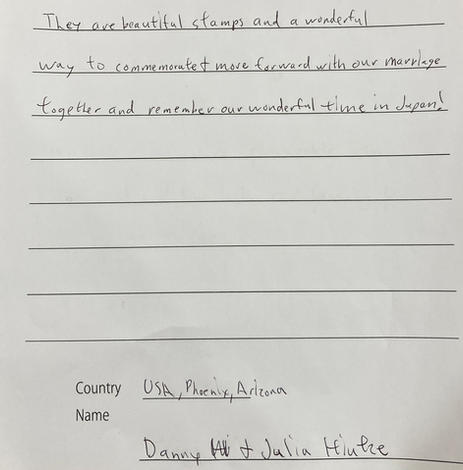 They are beautiful stamps and a wonderful
way to commemorate + move forward with our marriage
together and remember our wonderful time in Japan!
Country USA, Phoenix, Arizona
Name
Danny + Julia